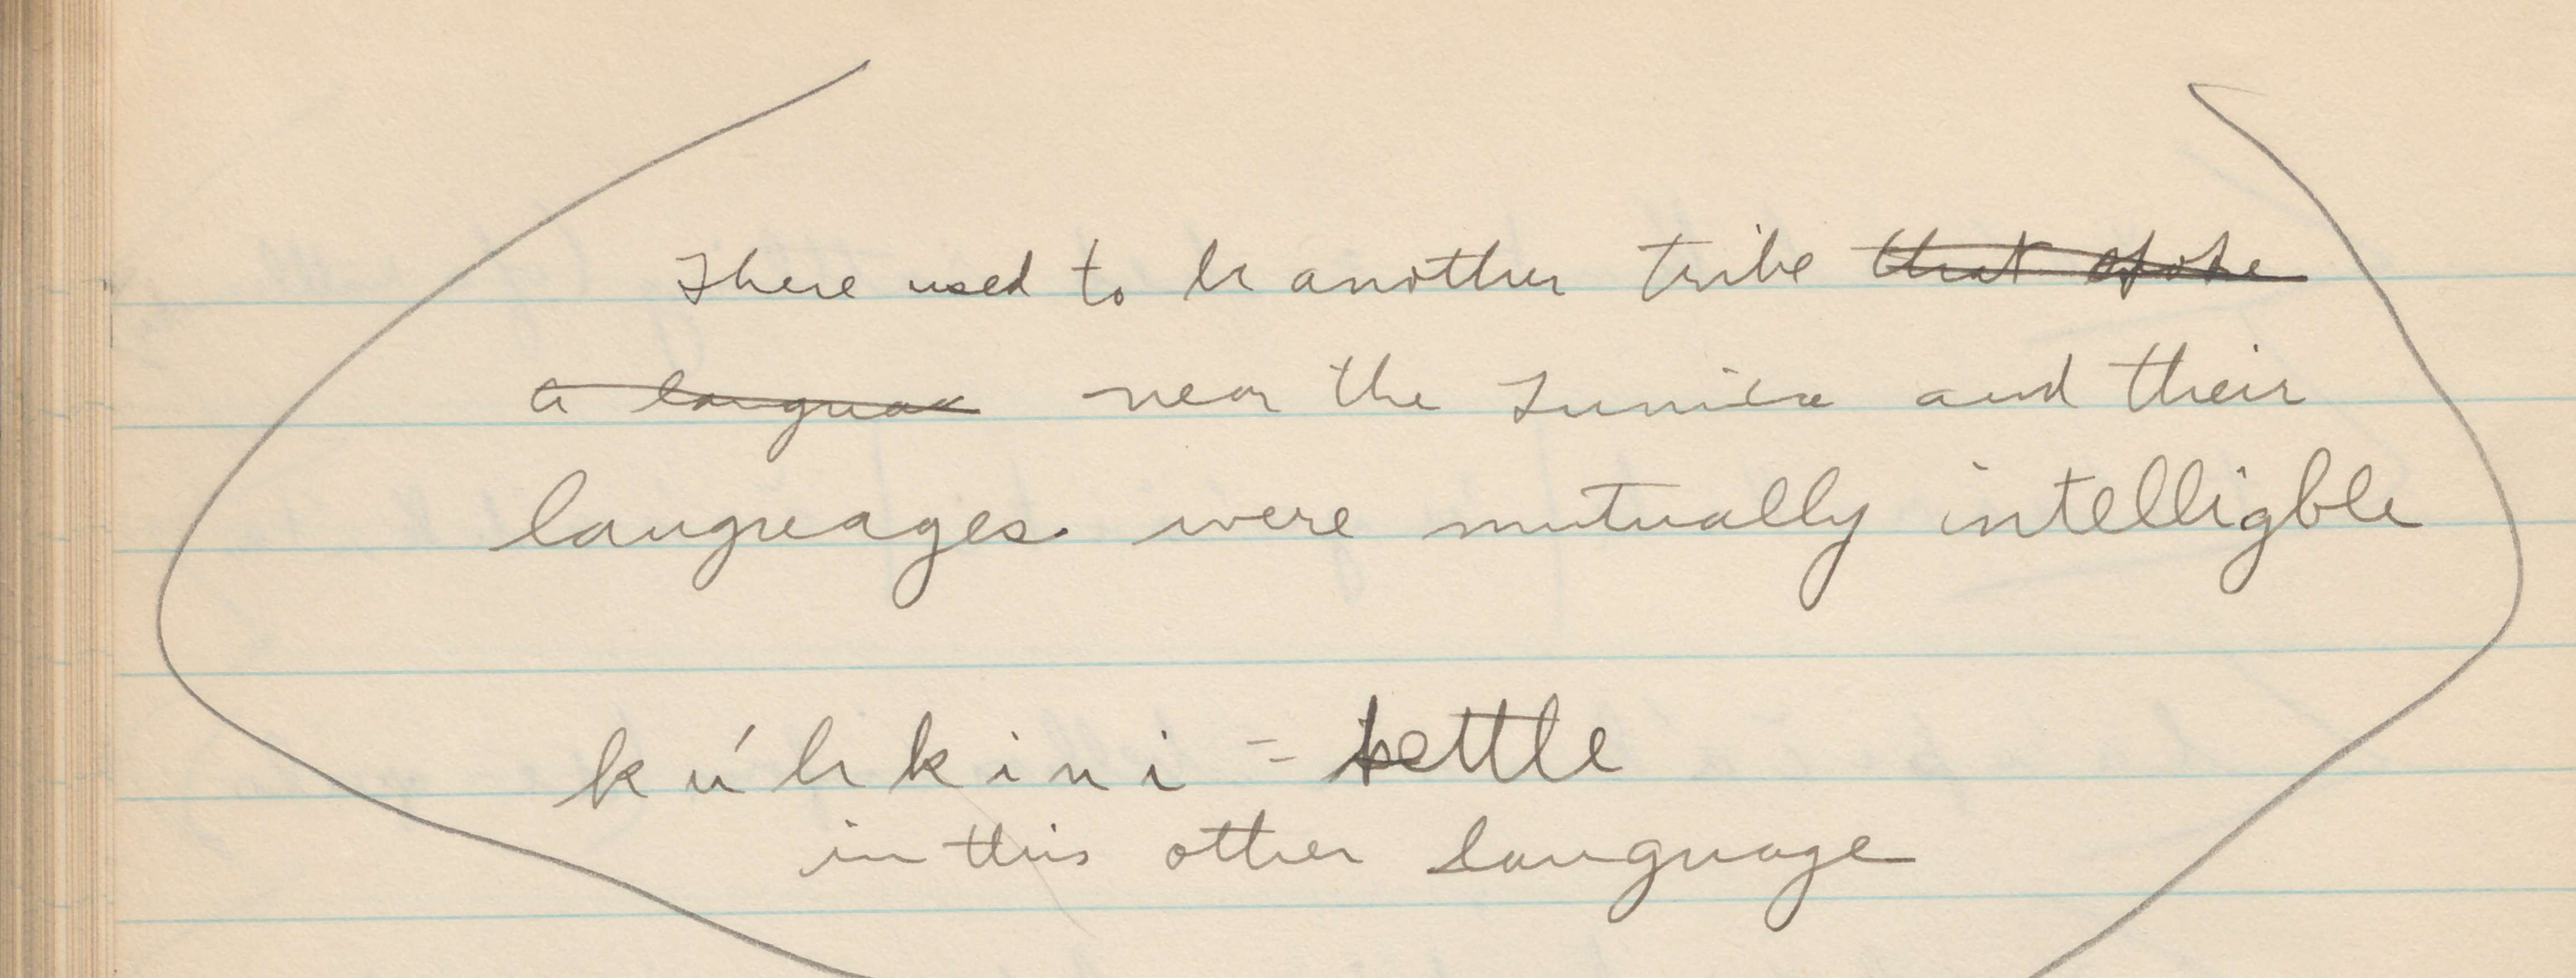 There used to be another tribe that spoke
a languag near the Tunica and their
languages were mutually intelligble
kúhkini = kettle
in this other language